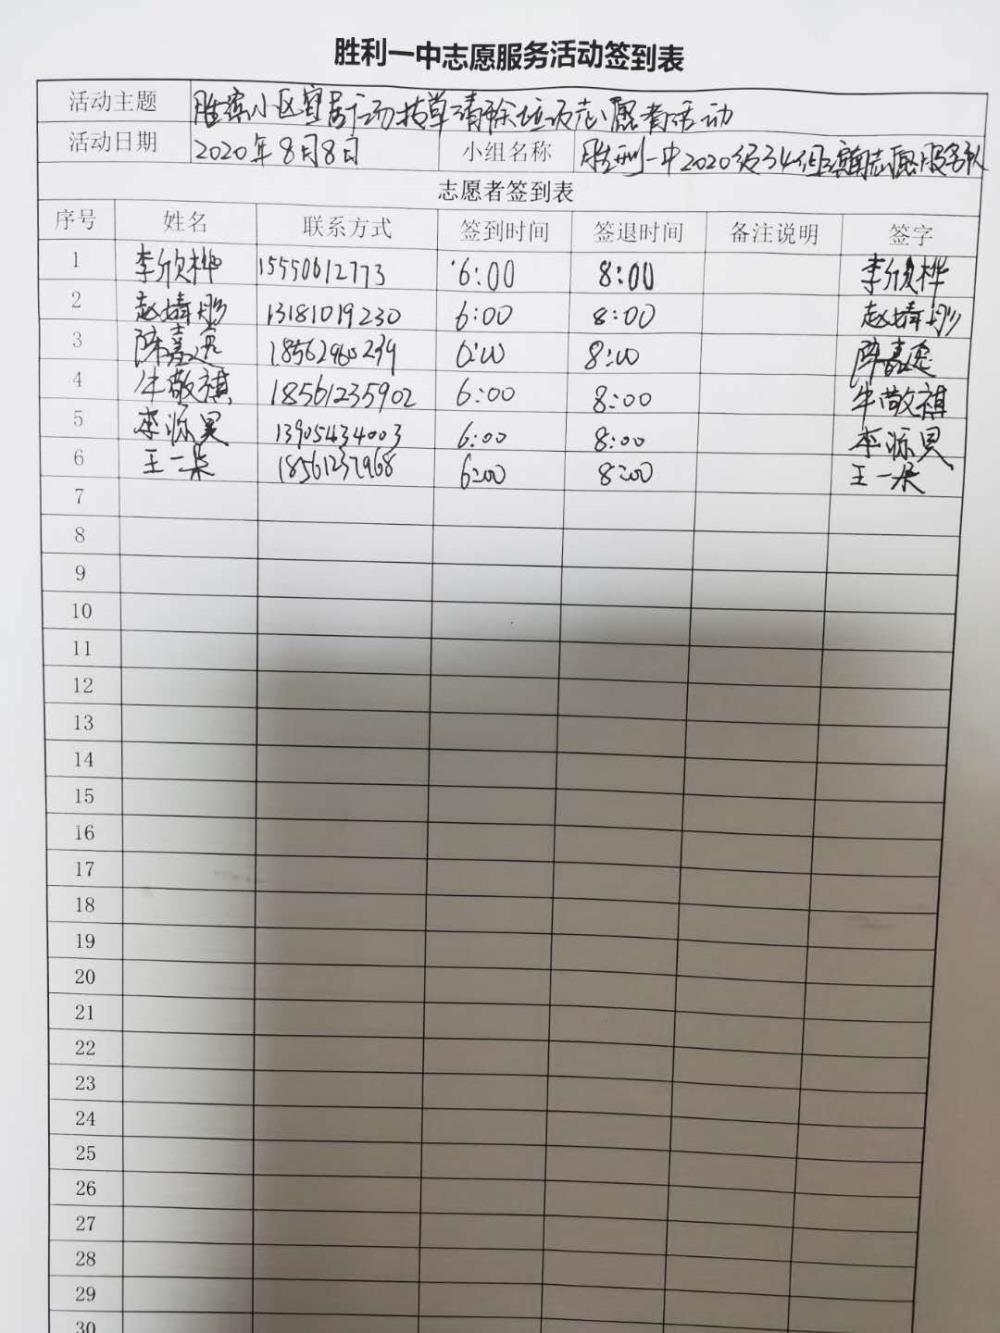 胜利一中志愿服务活动签到表
活动主题 胜滨小区宜居广场拔草清除垃圾志愿者活动
活动日期 2020年8月8日 小组名称 胜利一中2020级34组志愿服务队
志愿者签到表
序号 姓名 联系方式 签到时间 签退时间 备注说明 签字
1 李欣桦 15550612773 6:00 8:00 李欣桦
2 赵婧彤 13181019230 6:00 8:00 赵婧彤
3 陈嘉 18562960239 6:00 8:00 陈嘉
4 牛敬祺 18561235902 6:00 8:00 牛敬祺
5 李源昊 13905434003 6:00 8:00 李源昊
6 王一朵 18561237968 6:00 8:00 王一朵
7
8
9
10
11
12
13
14
15
16
17
18
19
20
21
22
23
24
25
26
27
28
29
30